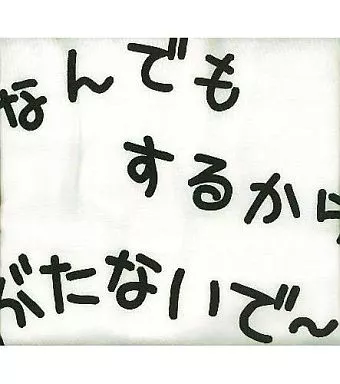 なんでも
するか
がたないで〜